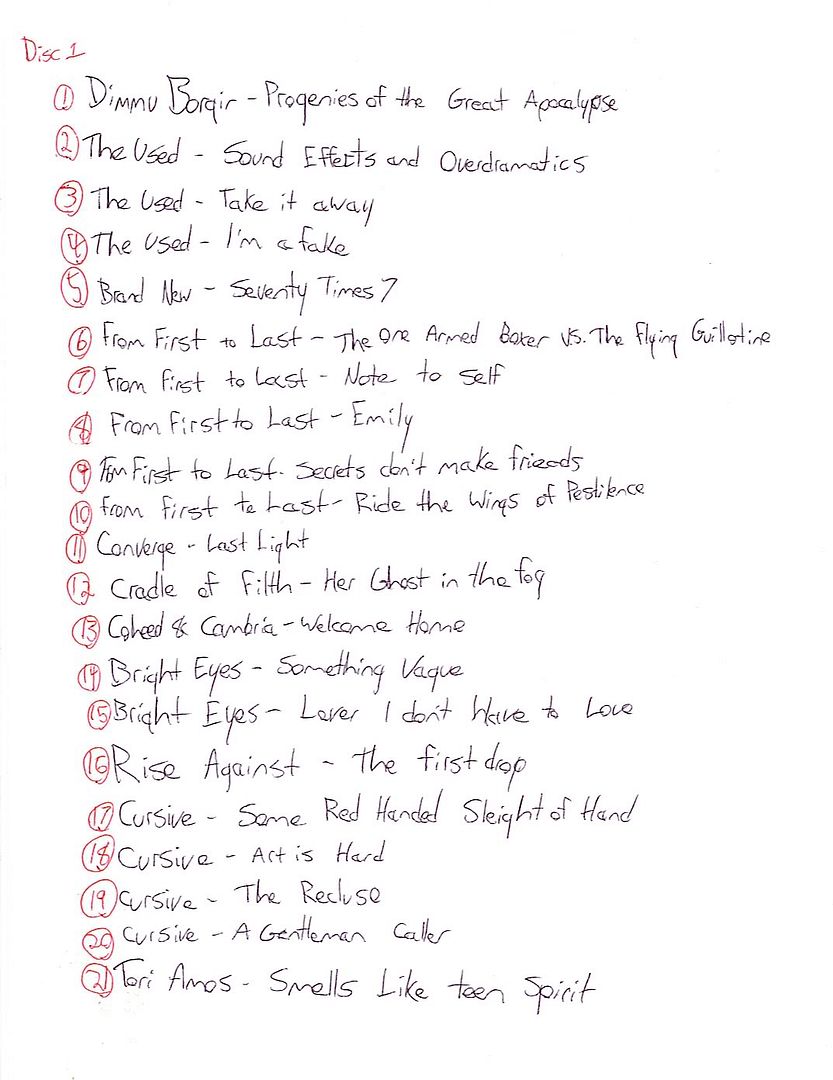 Disc 1
① Dimmu Borgir - Progenies of the Great Apocalypse
② The Used - Sound Effects and Overdramatics
③ The Used - Take it away
④ The Used - I'm a fake
⑤ Brand New - Seventy Times 7
⑥ From First to Last - The One Armed Boxer vs. The Flying Guillotine
⑦ From first to Last - Note to self
⑧ From First to Last - Emily
⑨ From First to Last - Secrets don't make friends
⑩ from first to Last - Ride the Wings of Pestilence
⑪ Converge - Last Light
⑫ Cradle of Filth - Her Ghost in the fog
⑬ Coheed & Cambria - Welcome Home
⑭ Bright Eyes - Something Vague
⑮ Bright Eyes - Lover I don't Have to Love
⑯ Rise Against - The first drop
⑰ Cursive - Some Red Handed Sleight of Hand
⑱ Cursive - Art is Hard
⑲ Cursive - The Recluse
⑳ Cursive - A Gentleman Caller
㉑ Tori Amos - Smells Like teen Spirit